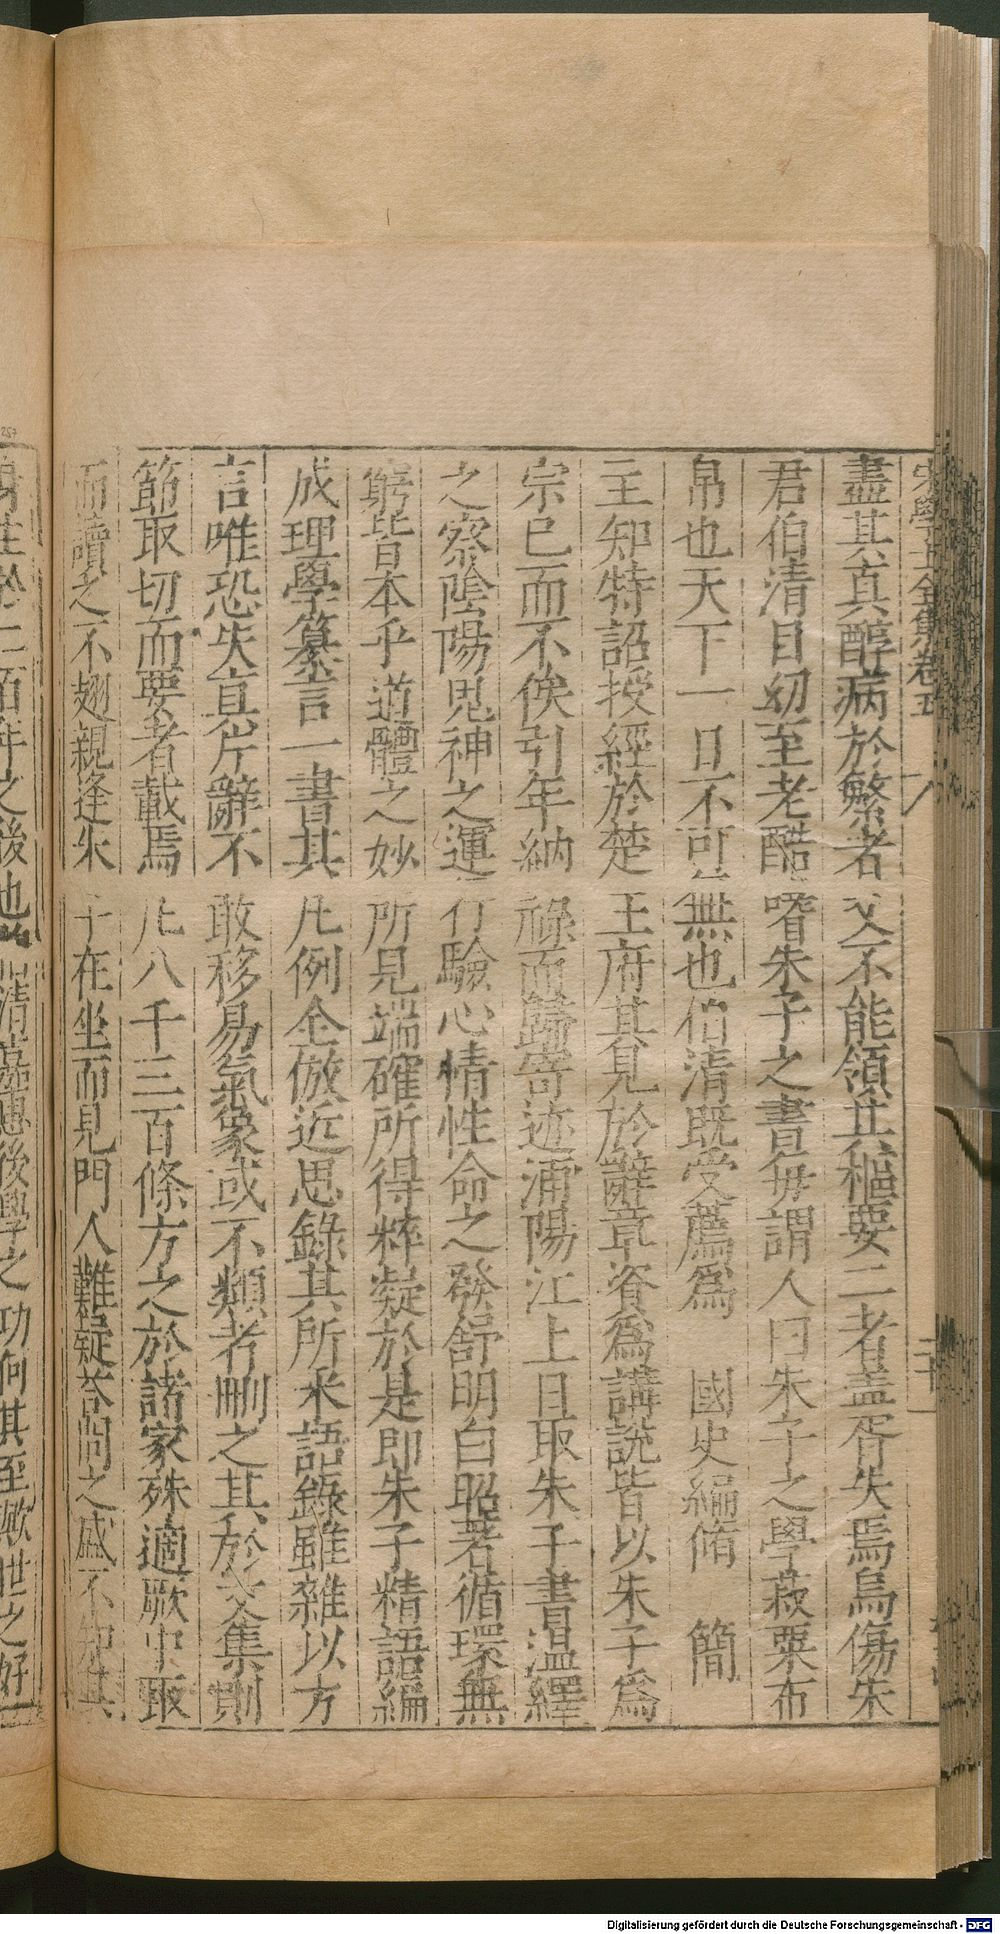 宋學士全集卷五 八 二十
盡其真醇病於繁者又不能領其樞要二者盖胥失焉烏傷朱
君伯清自幼至老酷嗜朱子之書毎謂人曰朱子之學菽粟布
帛也天下一日不可無也伯清既受薦爲 國史編脩 簡
主知特詔授經於楚王府其見於辭章資爲講說皆以朱子爲
宗已而不俟引年納祿而歸寄迹浦陽江上日取朱子書溫繹
之察陰陽鬼神之運行驗心情性命之發舒明白昭著循環無
窮皆本乎道體之妙所見端確所得粹凝於是即朱子精語編
成理學纂言一書其凡例全倣近思錄其所采語錄雖雜以方
言唯恐失真片辭不敢移易氣象或不類者刪之其於文集則
節取切而要者載焉凡八千三百條方之於諸家殊適厥中取
而讀之不翅親逢朱子在坐而見門人難疑荅問之盛不知其
身生於二百年之後也 清嘉惠後學之功何其至歟世之好
257
Digitalisierung gefördert durch die Deutsche Forschungsgemeinschaft - DFG